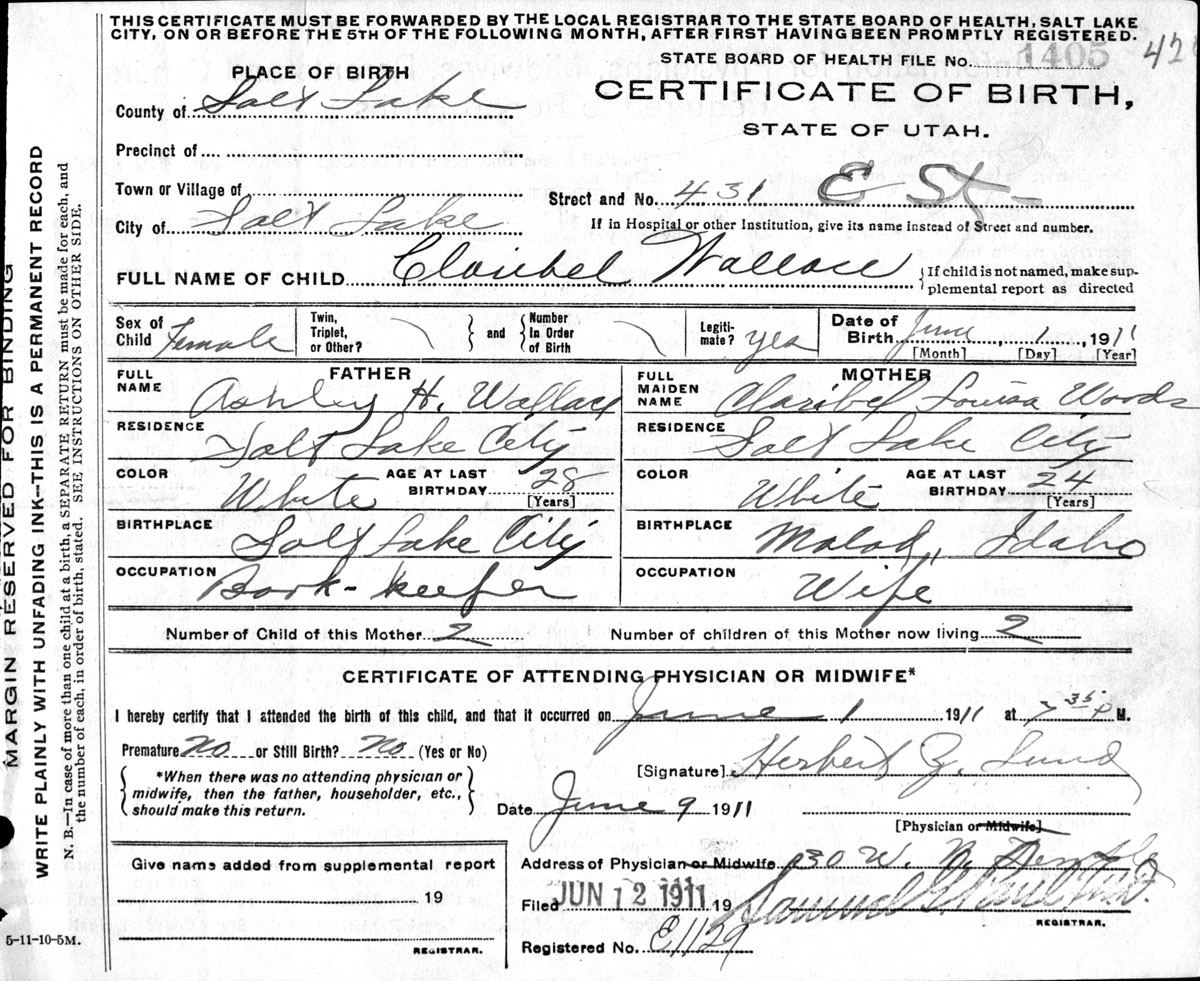 THIS CERTIFICATE MUST BE FORWARDED BY THE LOCAL REGISTRAR TO THE STATE BOARD OF HEALTH, SALT LAKE
CITY, ON OR BEFORE THE 5TH OF THE FOLLOWING MONTH, AFTER FIRST HAVING BEEN PROMPTLY REGISTERED.
STATE BOARD OF HEALTH FILE No. 1405 42
PLACE OF BIRTH
CERTIFICATE OF BIRTH,
County of Salt Lake
STATE OF UTAH.
Precinct of
Town or Village of
Street and No. 431 E St-
City of Salt Lake
If in Hospital or other Institution, give its name instead of Street and number.
FULL NAME OF CHILD Claribel Wallace
If child is not named, make sup-
plemental report as directed
Sex of Child Female
Twin, Triplet, or Other?
and
Number In Order of Birth
Legiti- mate? yes
Date of Birth June, 1, 1911
[Month] [Day] [Year]
FATHER
FULL NAME Ashley H. Wallace
RESIDENCE Salt Lake City
COLOR White AGE AT LAST BIRTHDAY 28 [Years]
BIRTHPLACE Salt Lake City
OCCUPATION Book-keeper
MOTHER
FULL MAIDEN NAME Claribel Louisa Woods
RESIDENCE Salt Lake City
COLOR White AGE AT LAST BIRTHDAY 24 [Years]
BIRTHPLACE Malad, Idaho
OCCUPATION Wife
Number of Child of this Mother 2 Number of children of this Mother now living 2
CERTIFICATE OF ATTENDING PHYSICIAN OR MIDWIFE*
I hereby certify that I attended the birth of this child, and that it occurred on June 1 1911 at 7 35 P M.
Premature No or Still Birth? No (Yes or No)
*When there was no attending physician or
midwife, then the father, householder, etc.,
should make this return.
[Signature] Herbert Z. Lund
Date June 9 1911
[Physician or Midwife]
Give name added from supplemental report
19
REGISTRAR.
Address of Physician or Midwife 130 W. N. Temple
Filed JUN 12 1911 19 Samuel G. Paul M.D.
REGISTRAR.
Registered No. E1129
5-11-10-5M.
MARGIN RESERVED FOR BINDING
WRITE PLAINLY WITH UNFADING INK--THIS IS A PERMANENT RECORD
N. B.—In case of more than one child at a birth, a SEPARATE RETURN must be made for each, and
the number of each, in order of birth, stated. SEE INSTRUCTIONS ON OTHER SIDE.